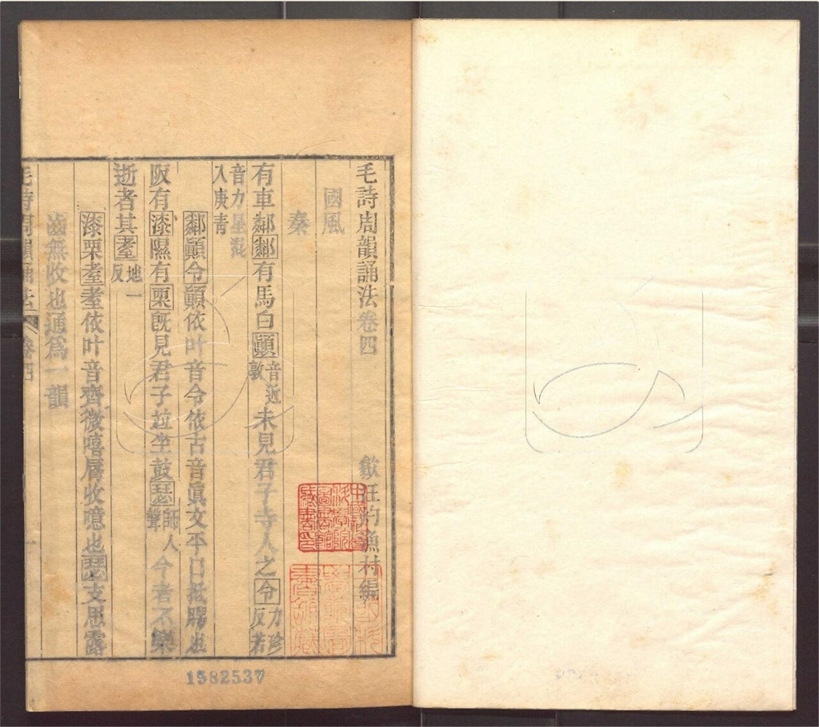 毛詩周韻誦法卷四 歙汪灼漁村編
國風
秦
有車鄰鄰有馬白顚音近未見君子寺人之令力珍反若
音力星混入庚青
鄰顚令顚依叶音令依古音眞文平口抵腭也
阪有漆隰有栗既見君子並坐鼓瑟師人聲今者不樂
逝者其耋地一反
漆栗耋耋依叶音齊微嘻脣收噫也瑟支思露
齒無收也通為一韻
毛詩周韻誦法 卷四 一
1582537